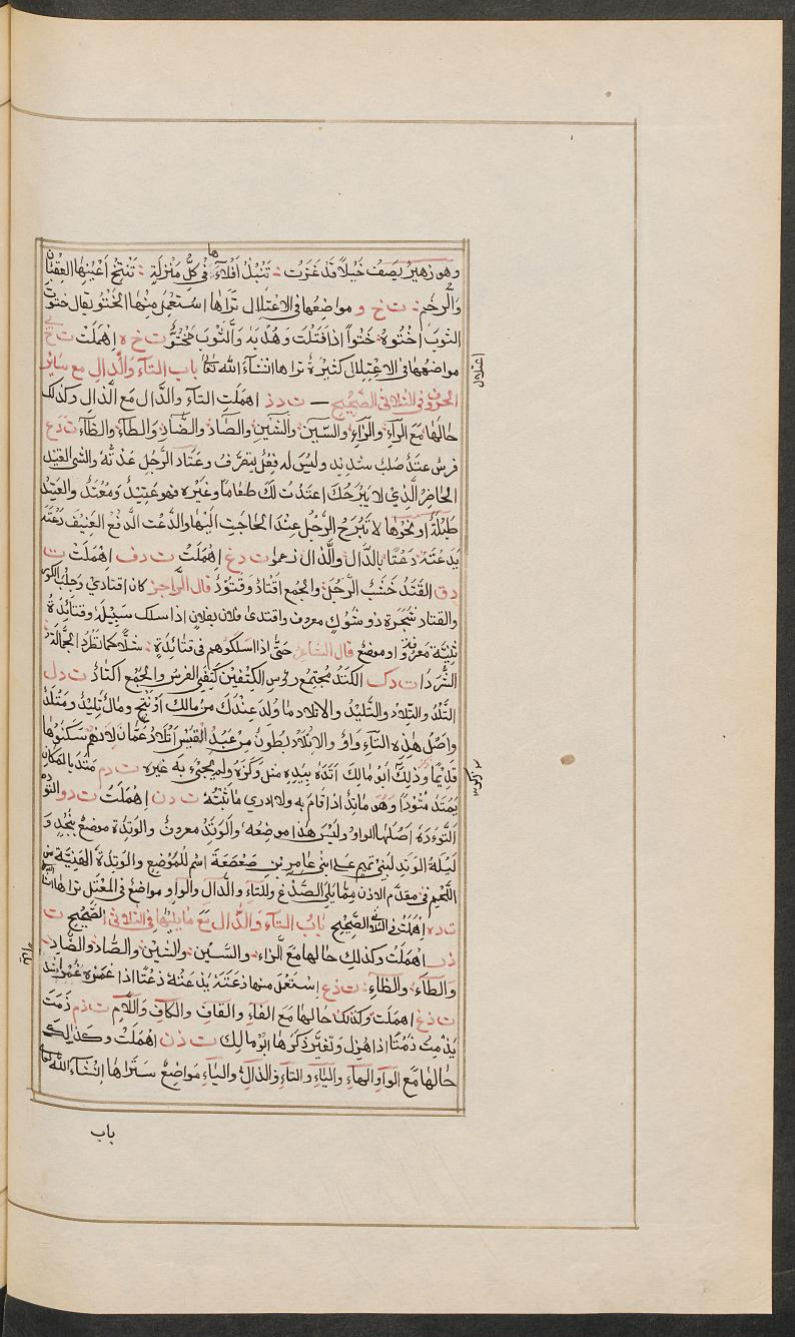 وهو زهير يصف خيلا قد غزت : تنبذ أفلاءها في كل منزلة : تنتخ أعينها العقبان
والرخم : ت خ و مواضعها في الاعتلال تراها استعمل منها الختو يقال ختوت
الثوب اختوه ختوا اذا فتلت هدبه والثوب مختو ت خ ه اهملت ت خ ي
مواضعها في الاعتلال كثيرة تراها ان شاء الله تعالى باب التاء والدال مع سائر
الحروف في الثلاثي الصحيح ـــ ت د ذ اهملت التاء والدال مع الذال وكذلك
حالها مع الراء والزاء والسين والشين والصاد والضاد والطاء والظاء ت د ع
فرس عتد صلب شديد وليس له فعل يتصرف وعتاد الرجل عدته والشي العتيد
الحاضر الذي لا يبرحك اعتدت لك طعاما وغيره فهو عتيد ومعتد والعتيد
طبلة او نحوها لا تبرح الرجل عند الحاجة اليها والدعت الدفع العنيف دعته
يدعته دعتا بالدال والذال زعموا ت د غ اهملت ت د ف اهملت ت
د ق القتد خشب الرحل والجمع اقتاد وقتود قال الراجز كان اقتادي وجلب الكور
والقتاد شجرة ذو شوك معروف واقتدى فلان بفلان اذا سلك سبيله وقتائدة
ثنية معروفة او موضع قال الشاعر حتى اذا اسلكوهم في قتائدة : شلا كما تطرد الجمالة
الشردا ت د ك الكتد مجتمع رؤس الكتفين كتفي الفرس والجمع اكتاد ت د ل
التلد والتلاد والتليد والاتلاد ما ولد عندك من مالك او نتج ومال تليد ومتلد
واصل هذه التاء واو والاتلاد بطون من عبد القيس اتلاد عمان لانهم سكنوها
قديما وذلك أبو مالك اتده بيده مثل وكزه ولم يجئ به غيره ت د م متد بالمكان
يمتد متودا وهو ماتد اذا قام به ولا ادري ما ثبته ت د ن اهملت ت د و التودة
التوءدة اصلها الواو وليس هذا موضعه والوتد معروف والوتدة موضع بنجد و
ليلة الوتد لبني تميم على بني عامر بن صعصعة اسم للموضع والوتدة الهنية من
اللحم في مقدم الاذن مما يلي الصدغ وللتاء والدال والواو مواضع في المعتل تراها ان شاء الله
ت د ه اهملت في الثلاثي الصحيح باب التاء والذال مع ما يليها في الثلاثي الصحيح ت
ذ ر اهملت وكذلك حالها مع الزاء والسين والشين والصاد والضاد
والطاء والظاء : ت ذ ع استعمل منها ذعته يذعته ذعتا اذا غمزه غمزا شديد
ت ذ غ اهملت وكذلك حالها مع الفاء والقاف والكاف واللام ت ذ م ذمت
يذمت ذمتا اذا هزل وتغير ذكرها ابو مالك ت ذ ن اهملت وكذلك
حالها مع الواو الهاء والياء والتاء والذال والياء مواضع ستراها ان شاء الله تعالى
باب
اعتلال